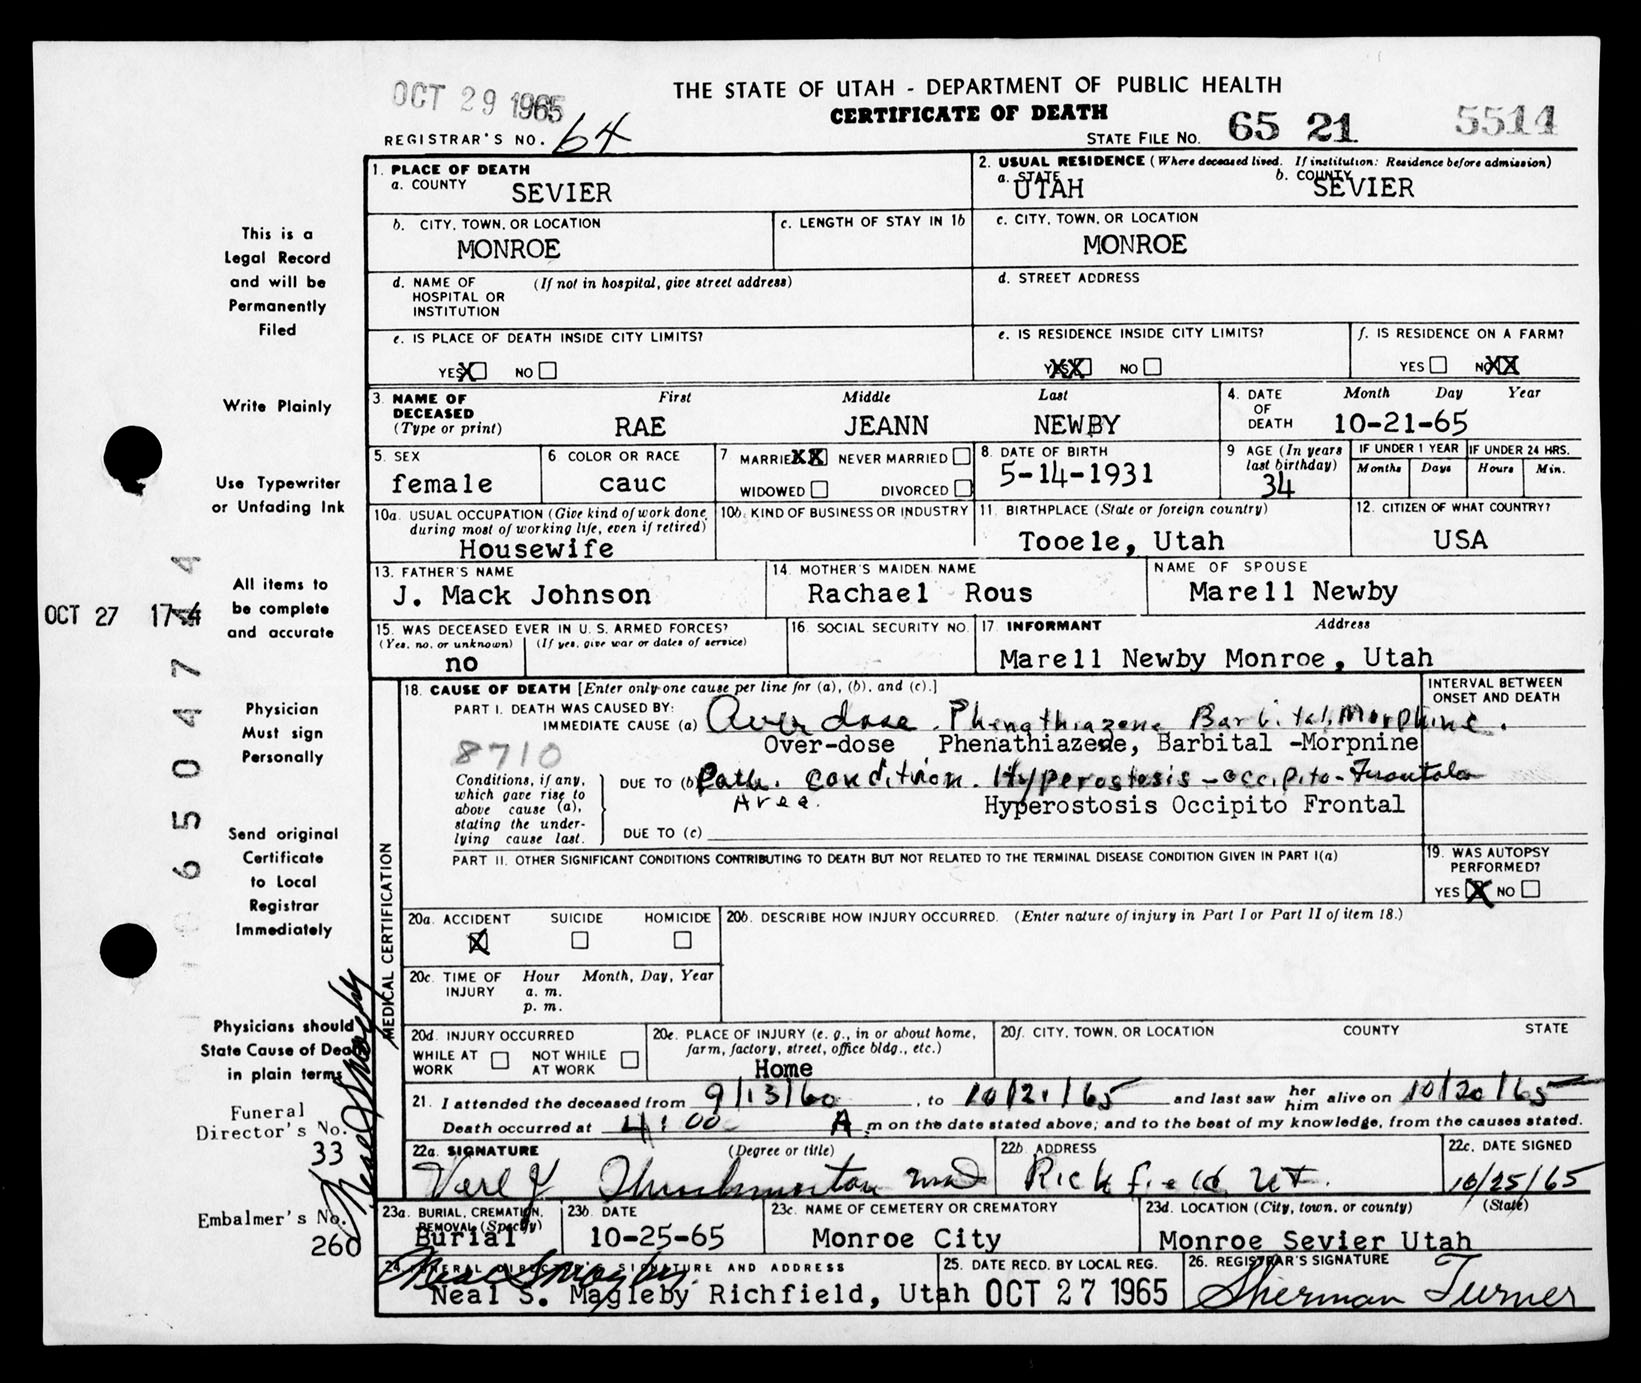 OCT 29 1965
THE STATE OF UTAH - DEPARTMENT OF PUBLIC HEALTH
CERTIFICATE OF DEATH
REGISTRAR'S NO. 64
STATE FILE NO. 65 21 5514
This is a
Legal Record
and will be
Permanently
Filed
Write Plainly
Use Typewriter
or Unfading Ink
All items to
be complete
and accurate
OCT 27
Physician
Must sign
Personally
Send original
Certificate
to Local
Registrar
Immediately
Physicians should
State Cause of Death
in plain terms
Funeral
Director's No.
33
Embalmer's No.
260
Neal S Magleby
65047
1. PLACE OF DEATH
a. COUNTY SEVIER
2. USUAL RESIDENCE (Where deceased lived. If institution: Residence before admission)
a. STATE UTAH b. COUNTY SEVIER
b. CITY, TOWN, OR LOCATION MONROE
c. LENGTH OF STAY IN 1b
c. CITY, TOWN, OR LOCATION MONROE
d. NAME OF HOSPITAL OR INSTITUTION (If not in hospital, give street address)
d. STREET ADDRESS
e. IS PLACE OF DEATH INSIDE CITY LIMITS?
YES X NO
e. IS RESIDENCE INSIDE CITY LIMITS?
YES XX NO
f. IS RESIDENCE ON A FARM?
YES NO XX
3. NAME OF DECEASED (Type or print) First Middle Last
RAE JEANN NEWBY
4. DATE OF DEATH Month Day Year
10-21-65
5. SEX
female
6 COLOR OR RACE
cauc
7 MARRIED XX NEVER MARRIED
WIDOWED DIVORCED
8. DATE OF BIRTH
5-14-1931
9 AGE (In years last birthday)
34
IF UNDER 1 YEAR IF UNDER 24 HRS.
Months Days Hours Min.
10a. USUAL OCCUPATION (Give kind of work done during most of working life, even if retired)
Housewife
10b. KIND OF BUSINESS OR INDUSTRY
11. BIRTHPLACE (State or foreign country)
Tooele, Utah
12. CITIZEN OF WHAT COUNTRY?
USA
13. FATHER'S NAME
J. Mack Johnson
14. MOTHER'S MAIDEN NAME
Rachael Rous
NAME OF SPOUSE
Marell Newby
15. WAS DECEASED EVER IN U. S. ARMED FORCES?
(Yes, no, or unknown) (If yes, give war or dates of service)
no
16. SOCIAL SECURITY NO.
17. INFORMANT Address
Marell Newby Monroe, Utah
MEDICAL CERTIFICATION
18. CAUSE OF DEATH [Enter only one cause per line for (a), (b), and (c).]
INTERVAL BETWEEN ONSET AND DEATH
PART I. DEATH WAS CAUSED BY:
IMMEDIATE CAUSE (a) Over dose. Phenathiazene Barbital, Morphine.
Over-dose Phenathiazene, Barbital -Morpnine
8710
Conditions, if any, which gave rise to above cause (a), stating the underlying cause last.
DUE TO (b) Path. condition. Hyperostosis - occipito-Frontal
Area.
Hyperostosis Occipito Frontal
DUE TO (c)
PART II. OTHER SIGNIFICANT CONDITIONS CONTRIBUTING TO DEATH BUT NOT RELATED TO THE TERMINAL DISEASE CONDITION GIVEN IN PART I(a)
19. WAS AUTOPSY PERFORMED?
YES X NO
20a. ACCIDENT SUICIDE HOMICIDE
X
20b. DESCRIBE HOW INJURY OCCURRED. (Enter nature of injury in Part I or Part II of item 18.)
20c. TIME OF INJURY Hour Month, Day, Year
a. m.
p. m.
20d. INJURY OCCURRED
WHILE AT WORK NOT WHILE AT WORK
20e. PLACE OF INJURY (e. g., in or about home, farm, factory, street, office bldg., etc.)
Home
20f. CITY, TOWN, OR LOCATION COUNTY STATE
21. I attended the deceased from 9/13/60, to 10/21/65 and last saw her him alive on 10/20/65
Death occurred at 4:00 A m on the date stated above; and to the best of my knowledge, from the causes stated.
22a. SIGNATURE (Degree or title)
Verl J Throckmorton md
22b. ADDRESS
Richfield Ut.
22c. DATE SIGNED
10/25/65
23a. BURIAL, CREMATION, REMOVAL (Specify)
Burial
23b. DATE
10-25-65
23c. NAME OF CEMETERY OR CREMATORY
Monroe City
23d. LOCATION (City, town, or county) (State)
Monroe Sevier Utah
24. FUNERAL DIRECTOR'S SIGNATURE AND ADDRESS
Neal S Magleby
Neal S. Magleby Richfield, Utah
25. DATE RECD. BY LOCAL REG.
OCT 27 1965
26. REGISTRAR'S SIGNATURE
Sherman Turner